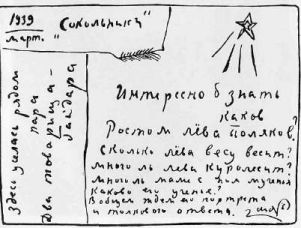 1939
март.
"Сокольники"
Здесь уселась рядом
пара
Два товарища -
Гайдара
Интересно б знать
каков
Ростом лёва поляков?
Сколько лёва весу весит?
Много ль лева куролесит?
Много ль маме с ним мученья
Каково его ученье?
Вобщем ждем мы портрета
и толкового ответа.